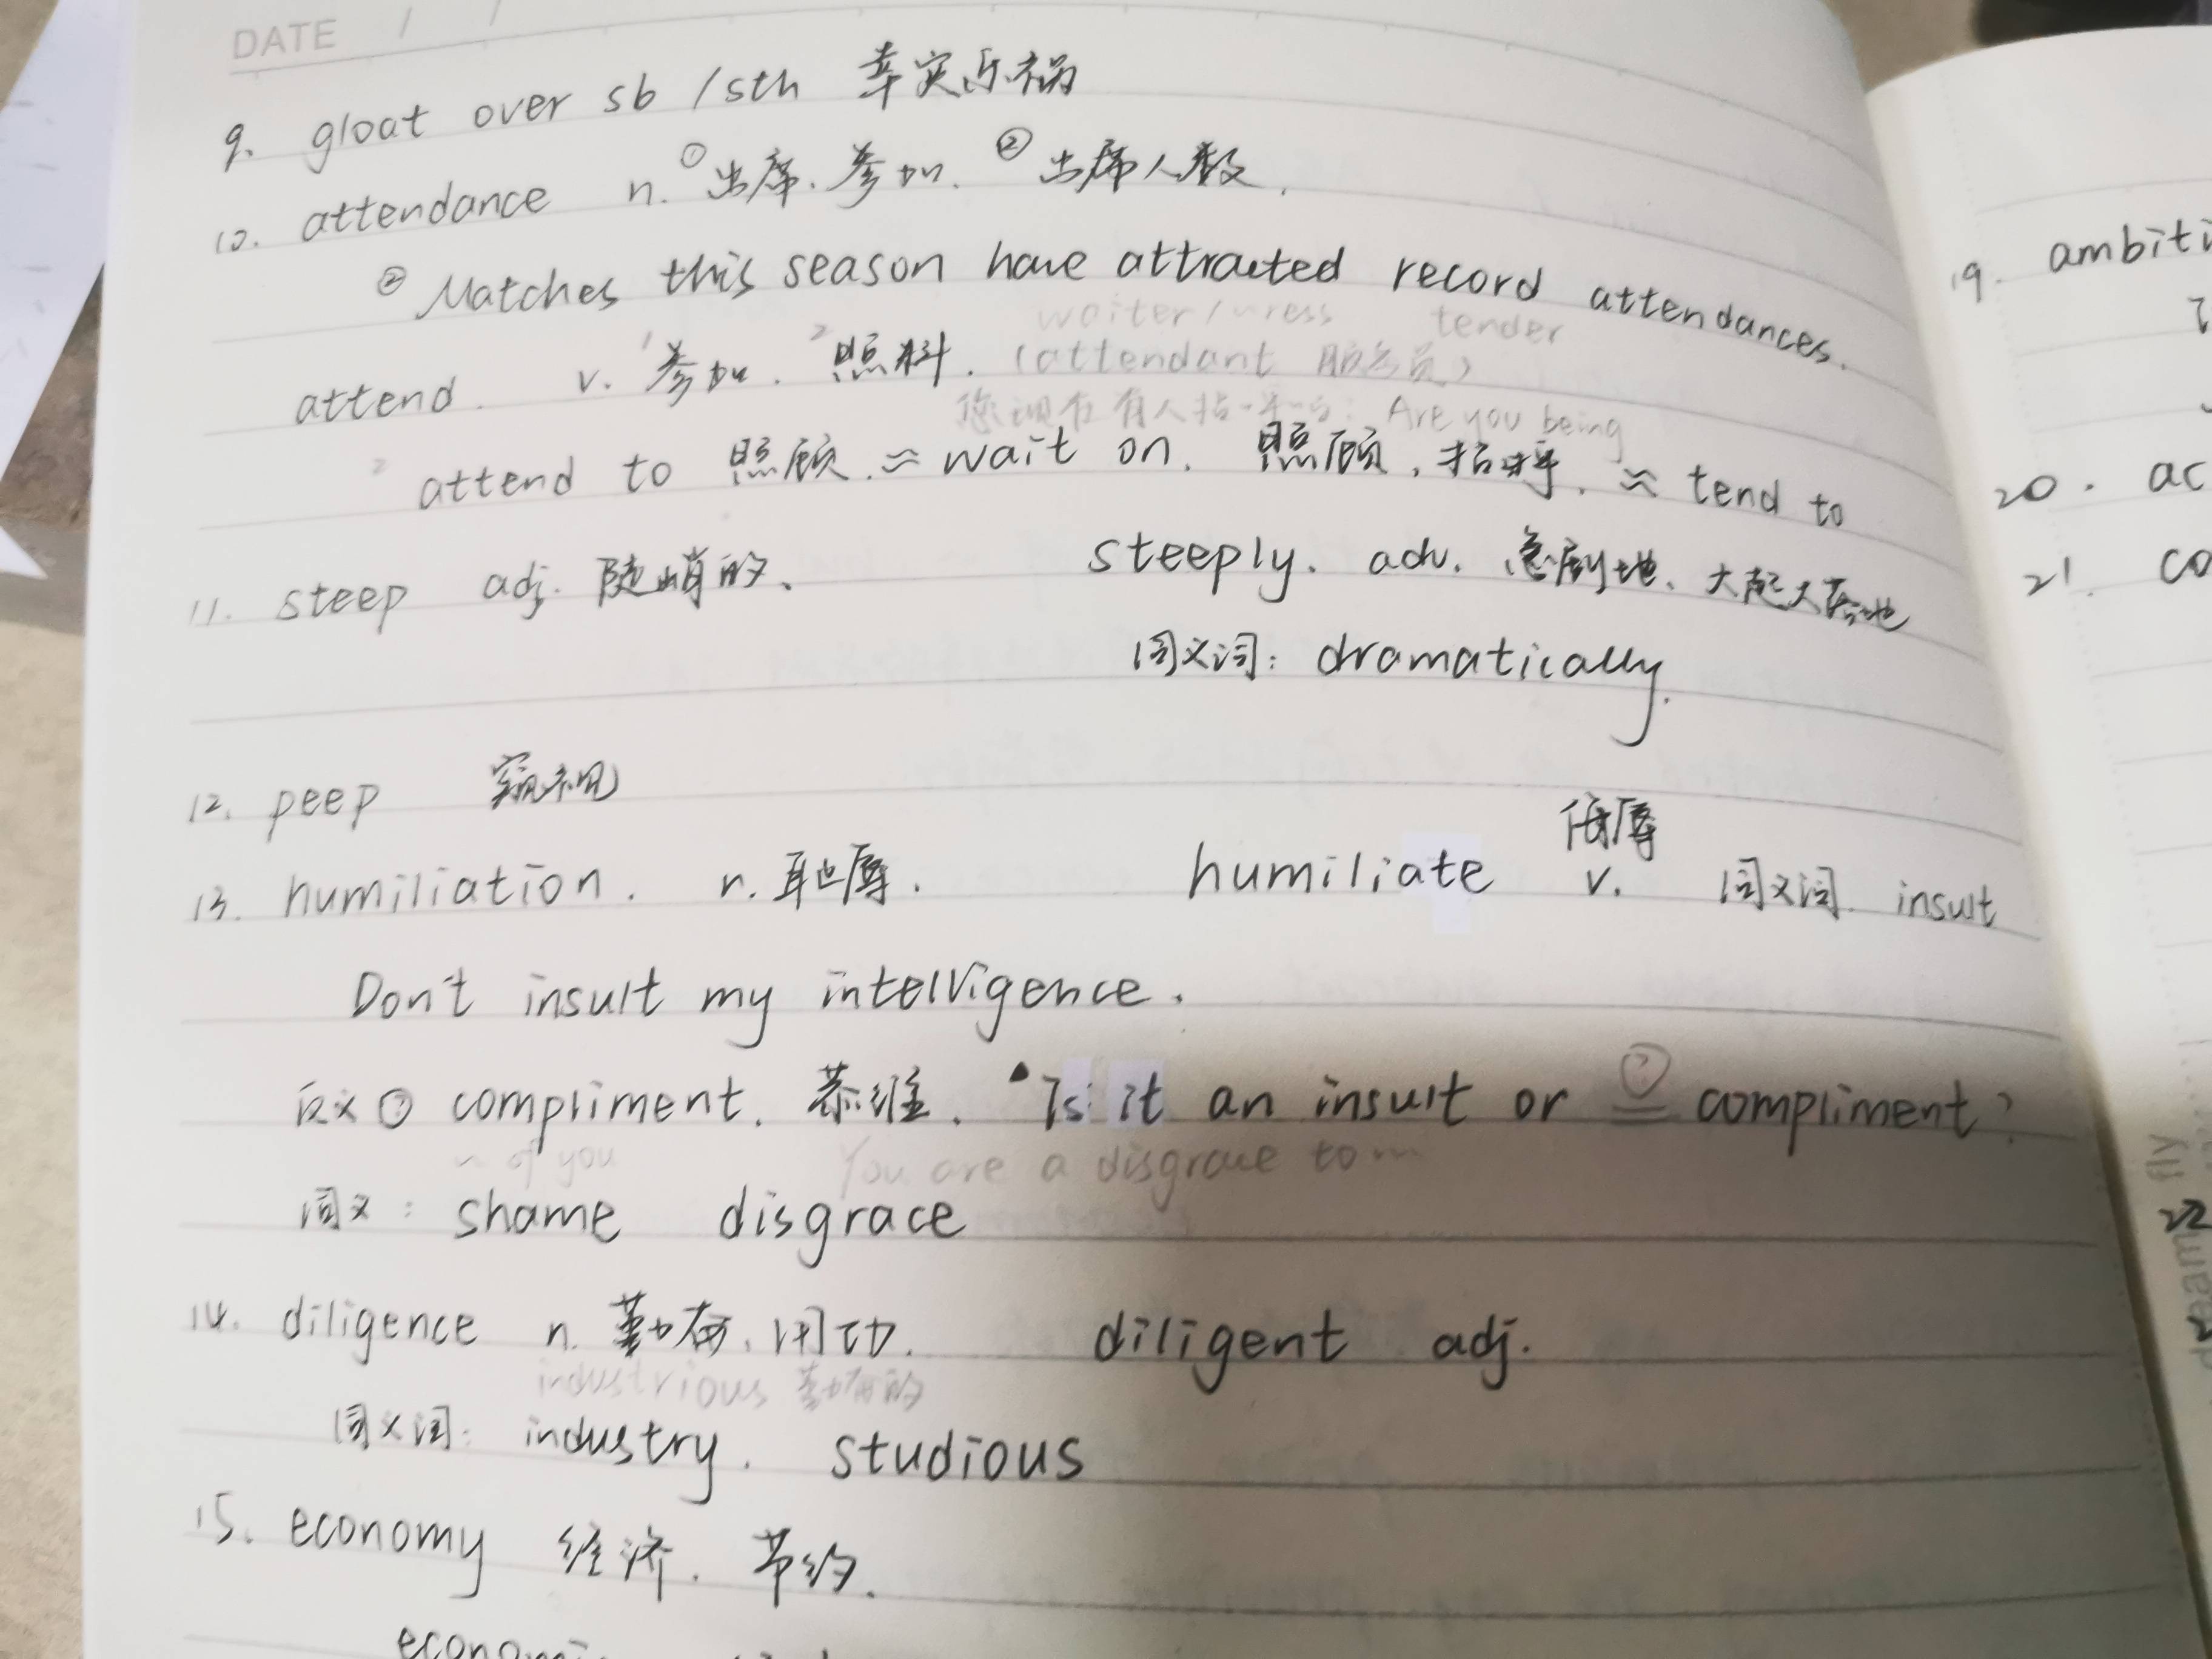 DATE / /
9. gloat over sb /sth 幸灾乐祸
10. attendance n. ①出席、参加. ②出席人数.
② Matches this season have attracted record attendances.
waiter/ress tender
attend v. 1参加. 2照料. (attendant 服务员)
您现在有人招呼吗: Are you being
2 attend to 照顾. ≈ wait on. 照顾, 招呼. ≈ tend to
11. steep adj. 陡峭的、 steeply. adv. 急剧地、大起大落地
同义词: dramatically.
12. peep 窥视
侮辱
13. humiliation. n. 耻辱. humiliate v. 同义词. insult
Don't insult my intelligence.
反义 compliment. 恭维. Is it an insult or compliment?
~ of you You are a disgrace to
同义: shame disgrace
14. diligence n. 勤奋、用功. diligent adj.
industrious 勤奋的
同义词: industry. studious
15. economy 经济. 节约.
19. ambiti
20. ac
21. co
fly
22
dream